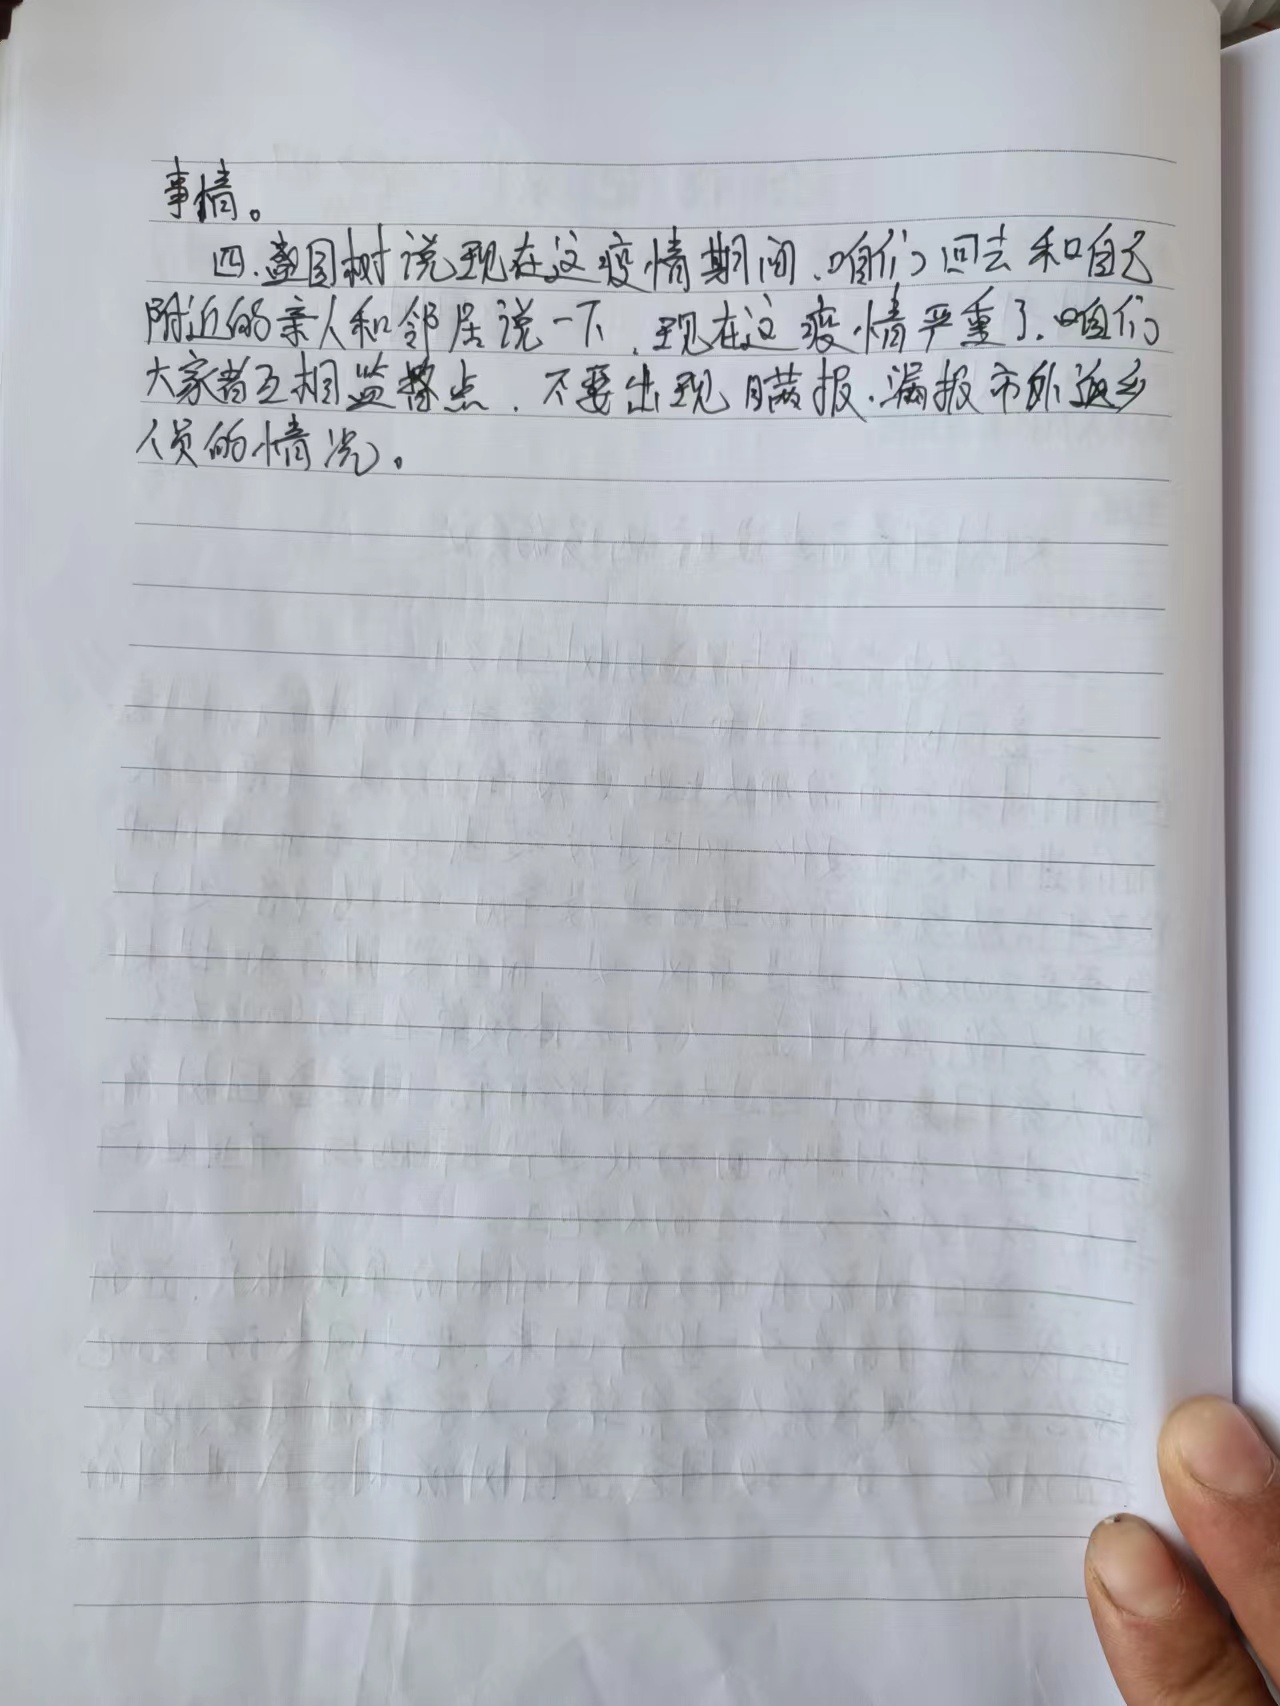 事情。
四、国树说现在这疫情期间、咱们回去和自己
附近的亲人和邻居说一下、现在这疫情严重了、咱们
大家都互相监督点、不要出现瞒报、漏报市外返乡
人员的情况。